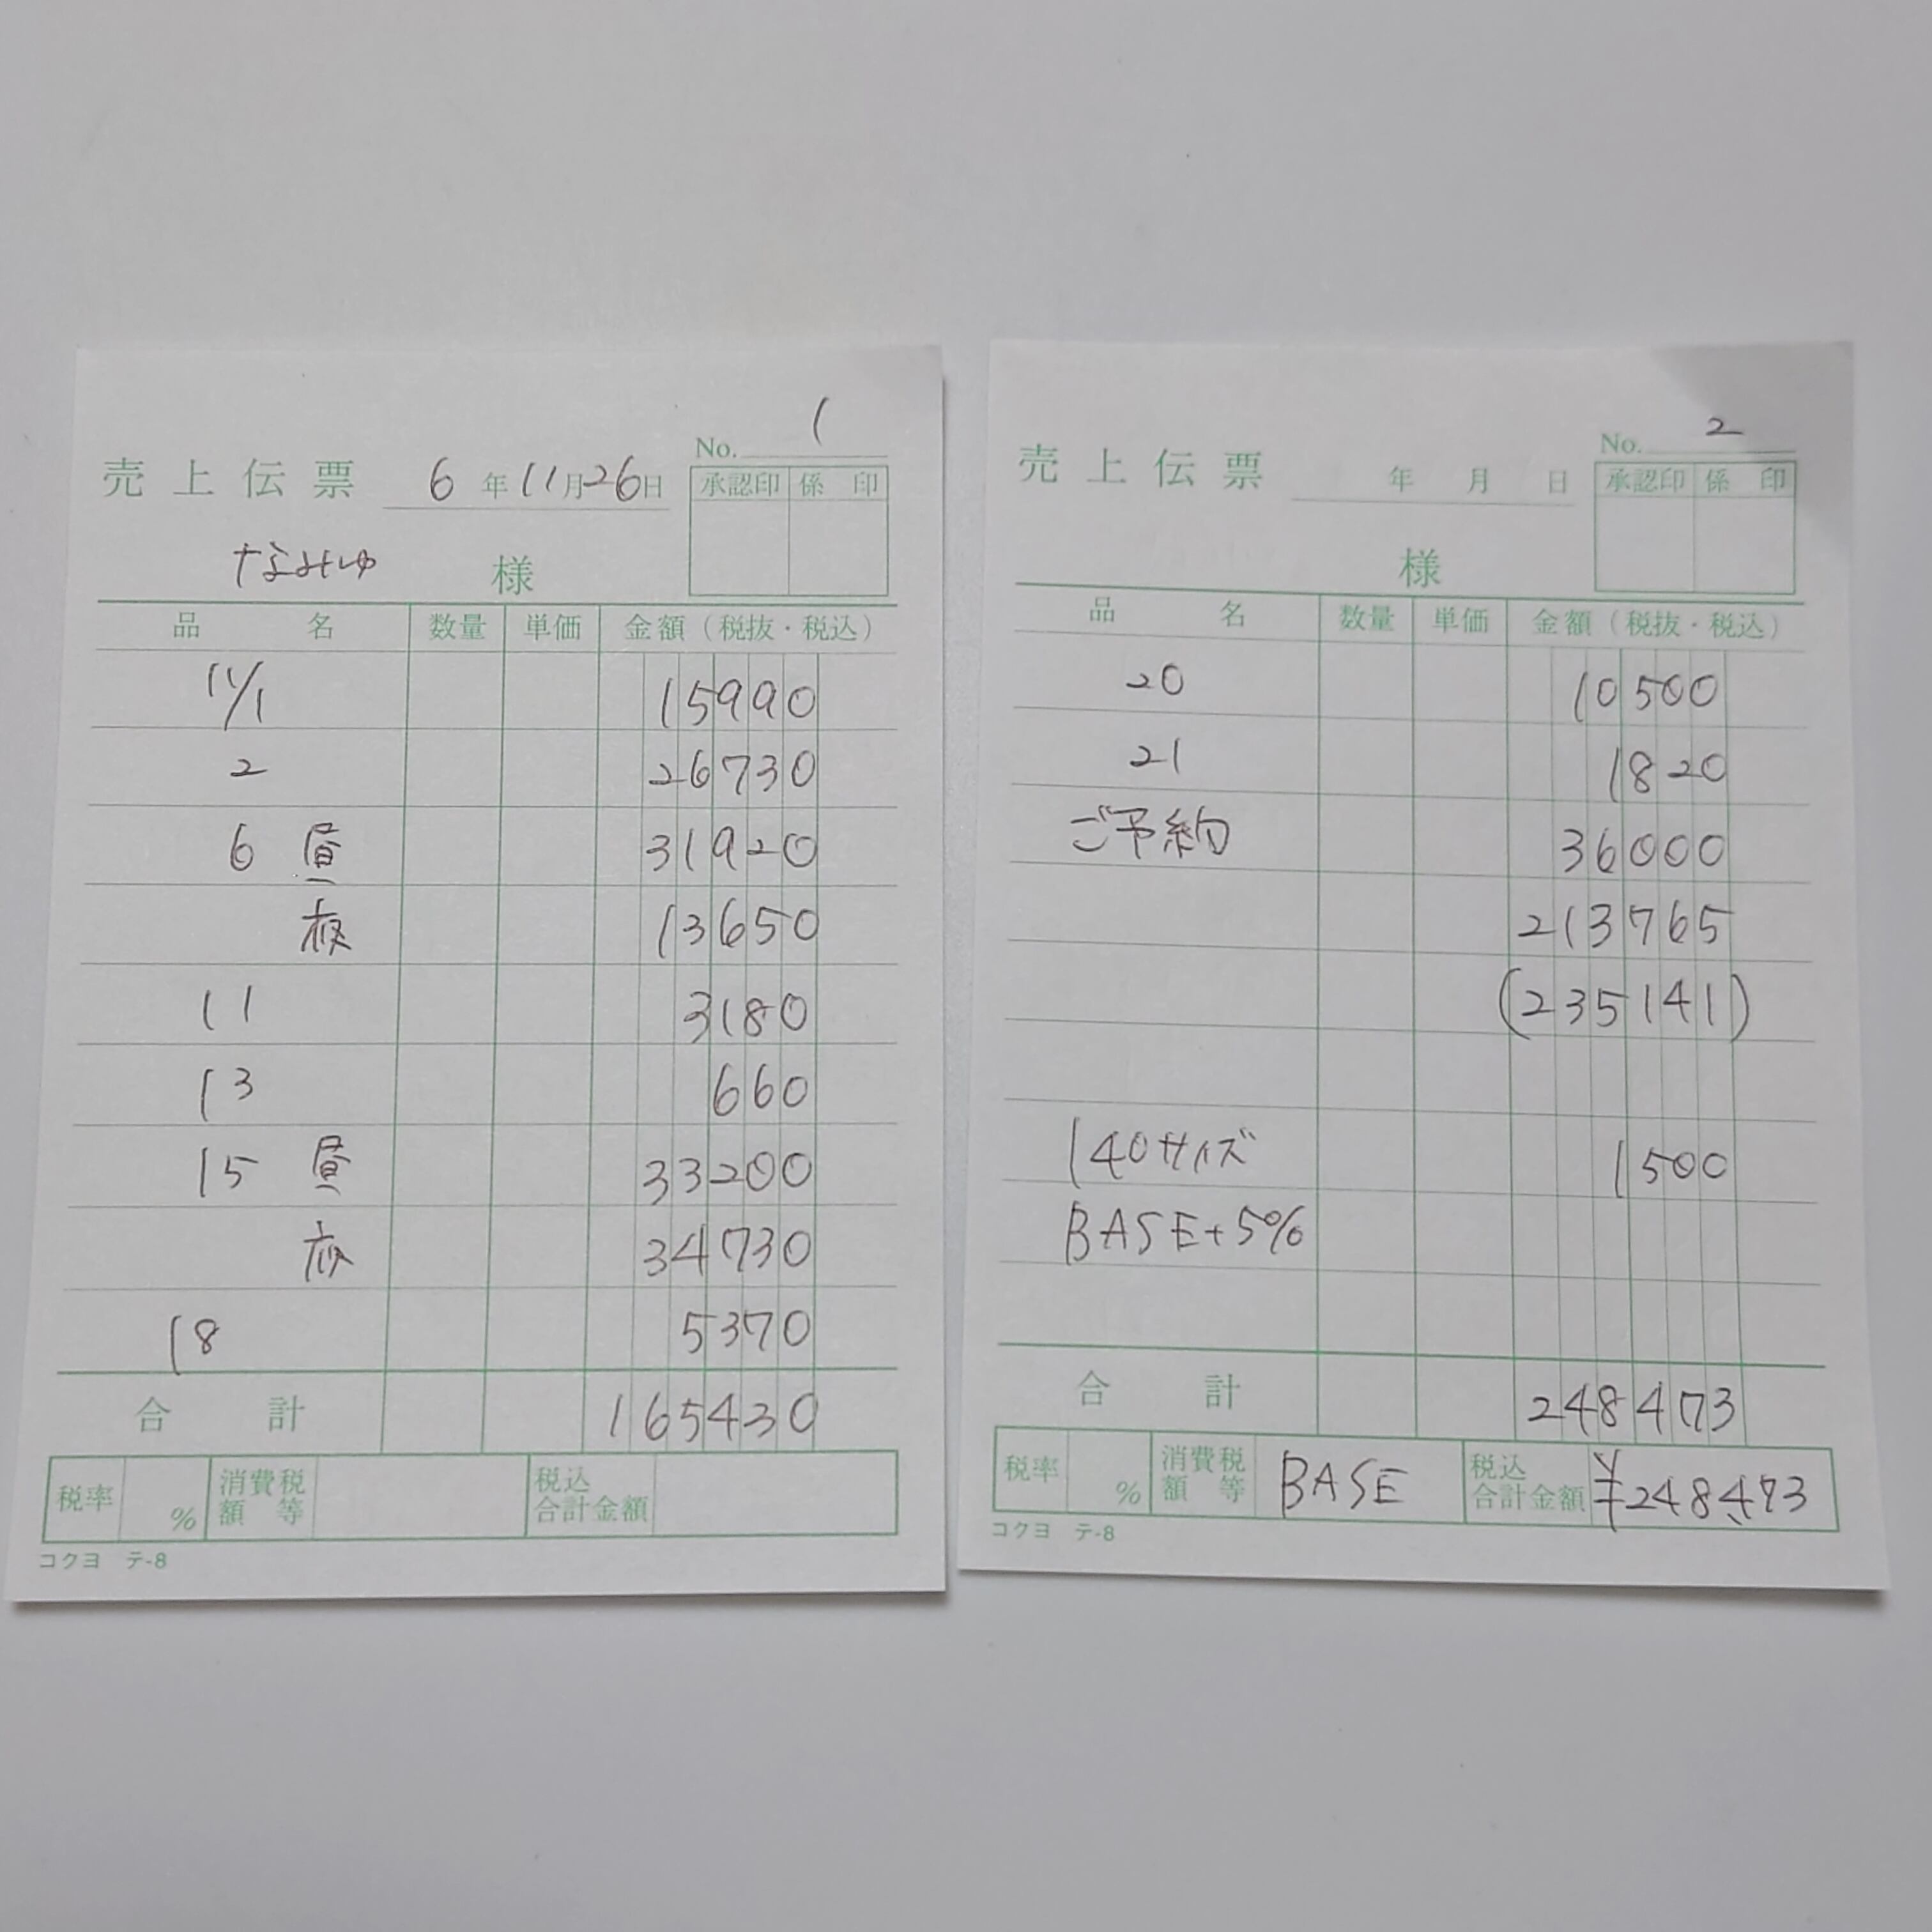 No. 1
売上伝票 6年11月26日
承認印 係印
なみゆ 様
品名 数量 単価 金額(税抜・税込)
11/1 15990
2 26730
6 昼 31920
夜 13650
11 3180
13 660
15 昼 33200
夜 34730
18 5370
合計 165430
税率 % 消費税額等 税込合計金額
コクヨ テ-8
No. 2
売上伝票 年 月 日
承認印 係印
様
品名 数量 単価 金額(税抜・税込)
20 10500
21 1820
ご予約 36000
213765
(235141)
140サイズ 1500
BASE+5%
合計 248473
税率 % 消費税額等 BASE 税込合計金額 ¥248,473
コクヨ テ-8